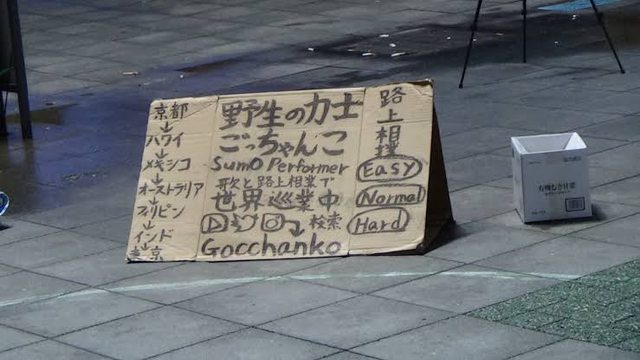 京都
↓
ハワイ
↓
メキシコ
↓
オーストラリア
↓
フィリピン
↓
インド
↓
東京
野生の力士
ごっちゃんこ
SumO Performer
歌と路上相撲で
世界巡業中
検索
Gocchanko
路上相撲
Easy
Normal
Hard